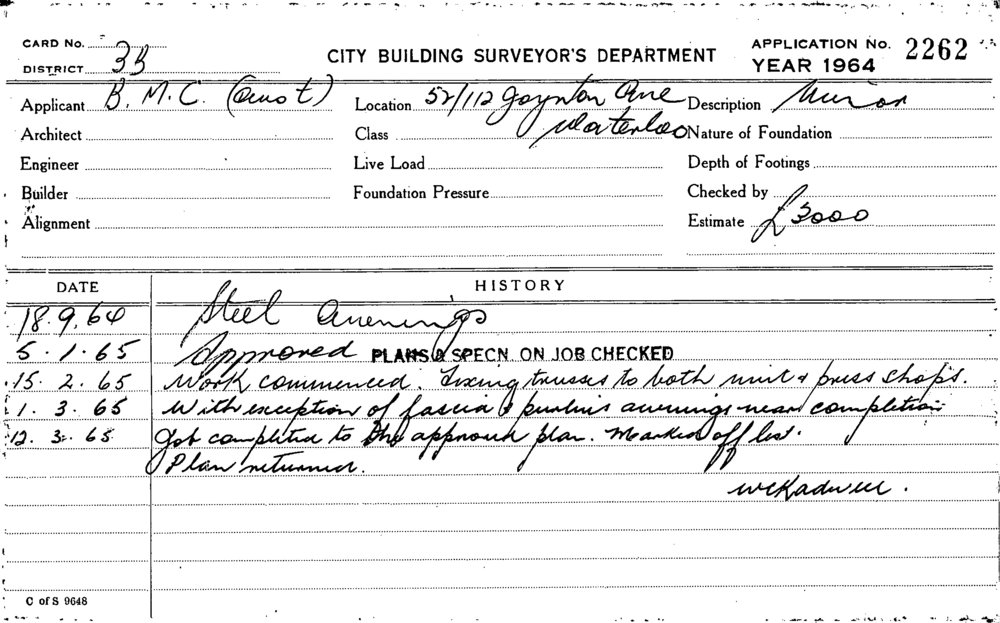 CARD No.
DISTRICT 3B
CITY BUILDING SURVEYOR'S DEPARTMENT
APPLICATION No. 2262
YEAR 1964
Applicant B. M. C. (Aust)
Location 52/112 Joynton Ave
Waterloo
Description Minor
Architect
Class
Nature of Foundation
Engineer
Live Load
Depth of Footings
Builder
Foundation Pressure
Checked by
Alignment
Estimate £3000
DATE HISTORY
18.9.64 Steel Awnings
5.1.65 Approved PLANS & SPECN. ON JOB CHECKED
15.2.65 Work commenced. Fixing trusses to both unit & press shops.
1.3.65 With exception of fascia & purlins awnings near completion
12.3.65 Job completed to the approved plan. Marked off list.
Plan returned.
C of S 9648